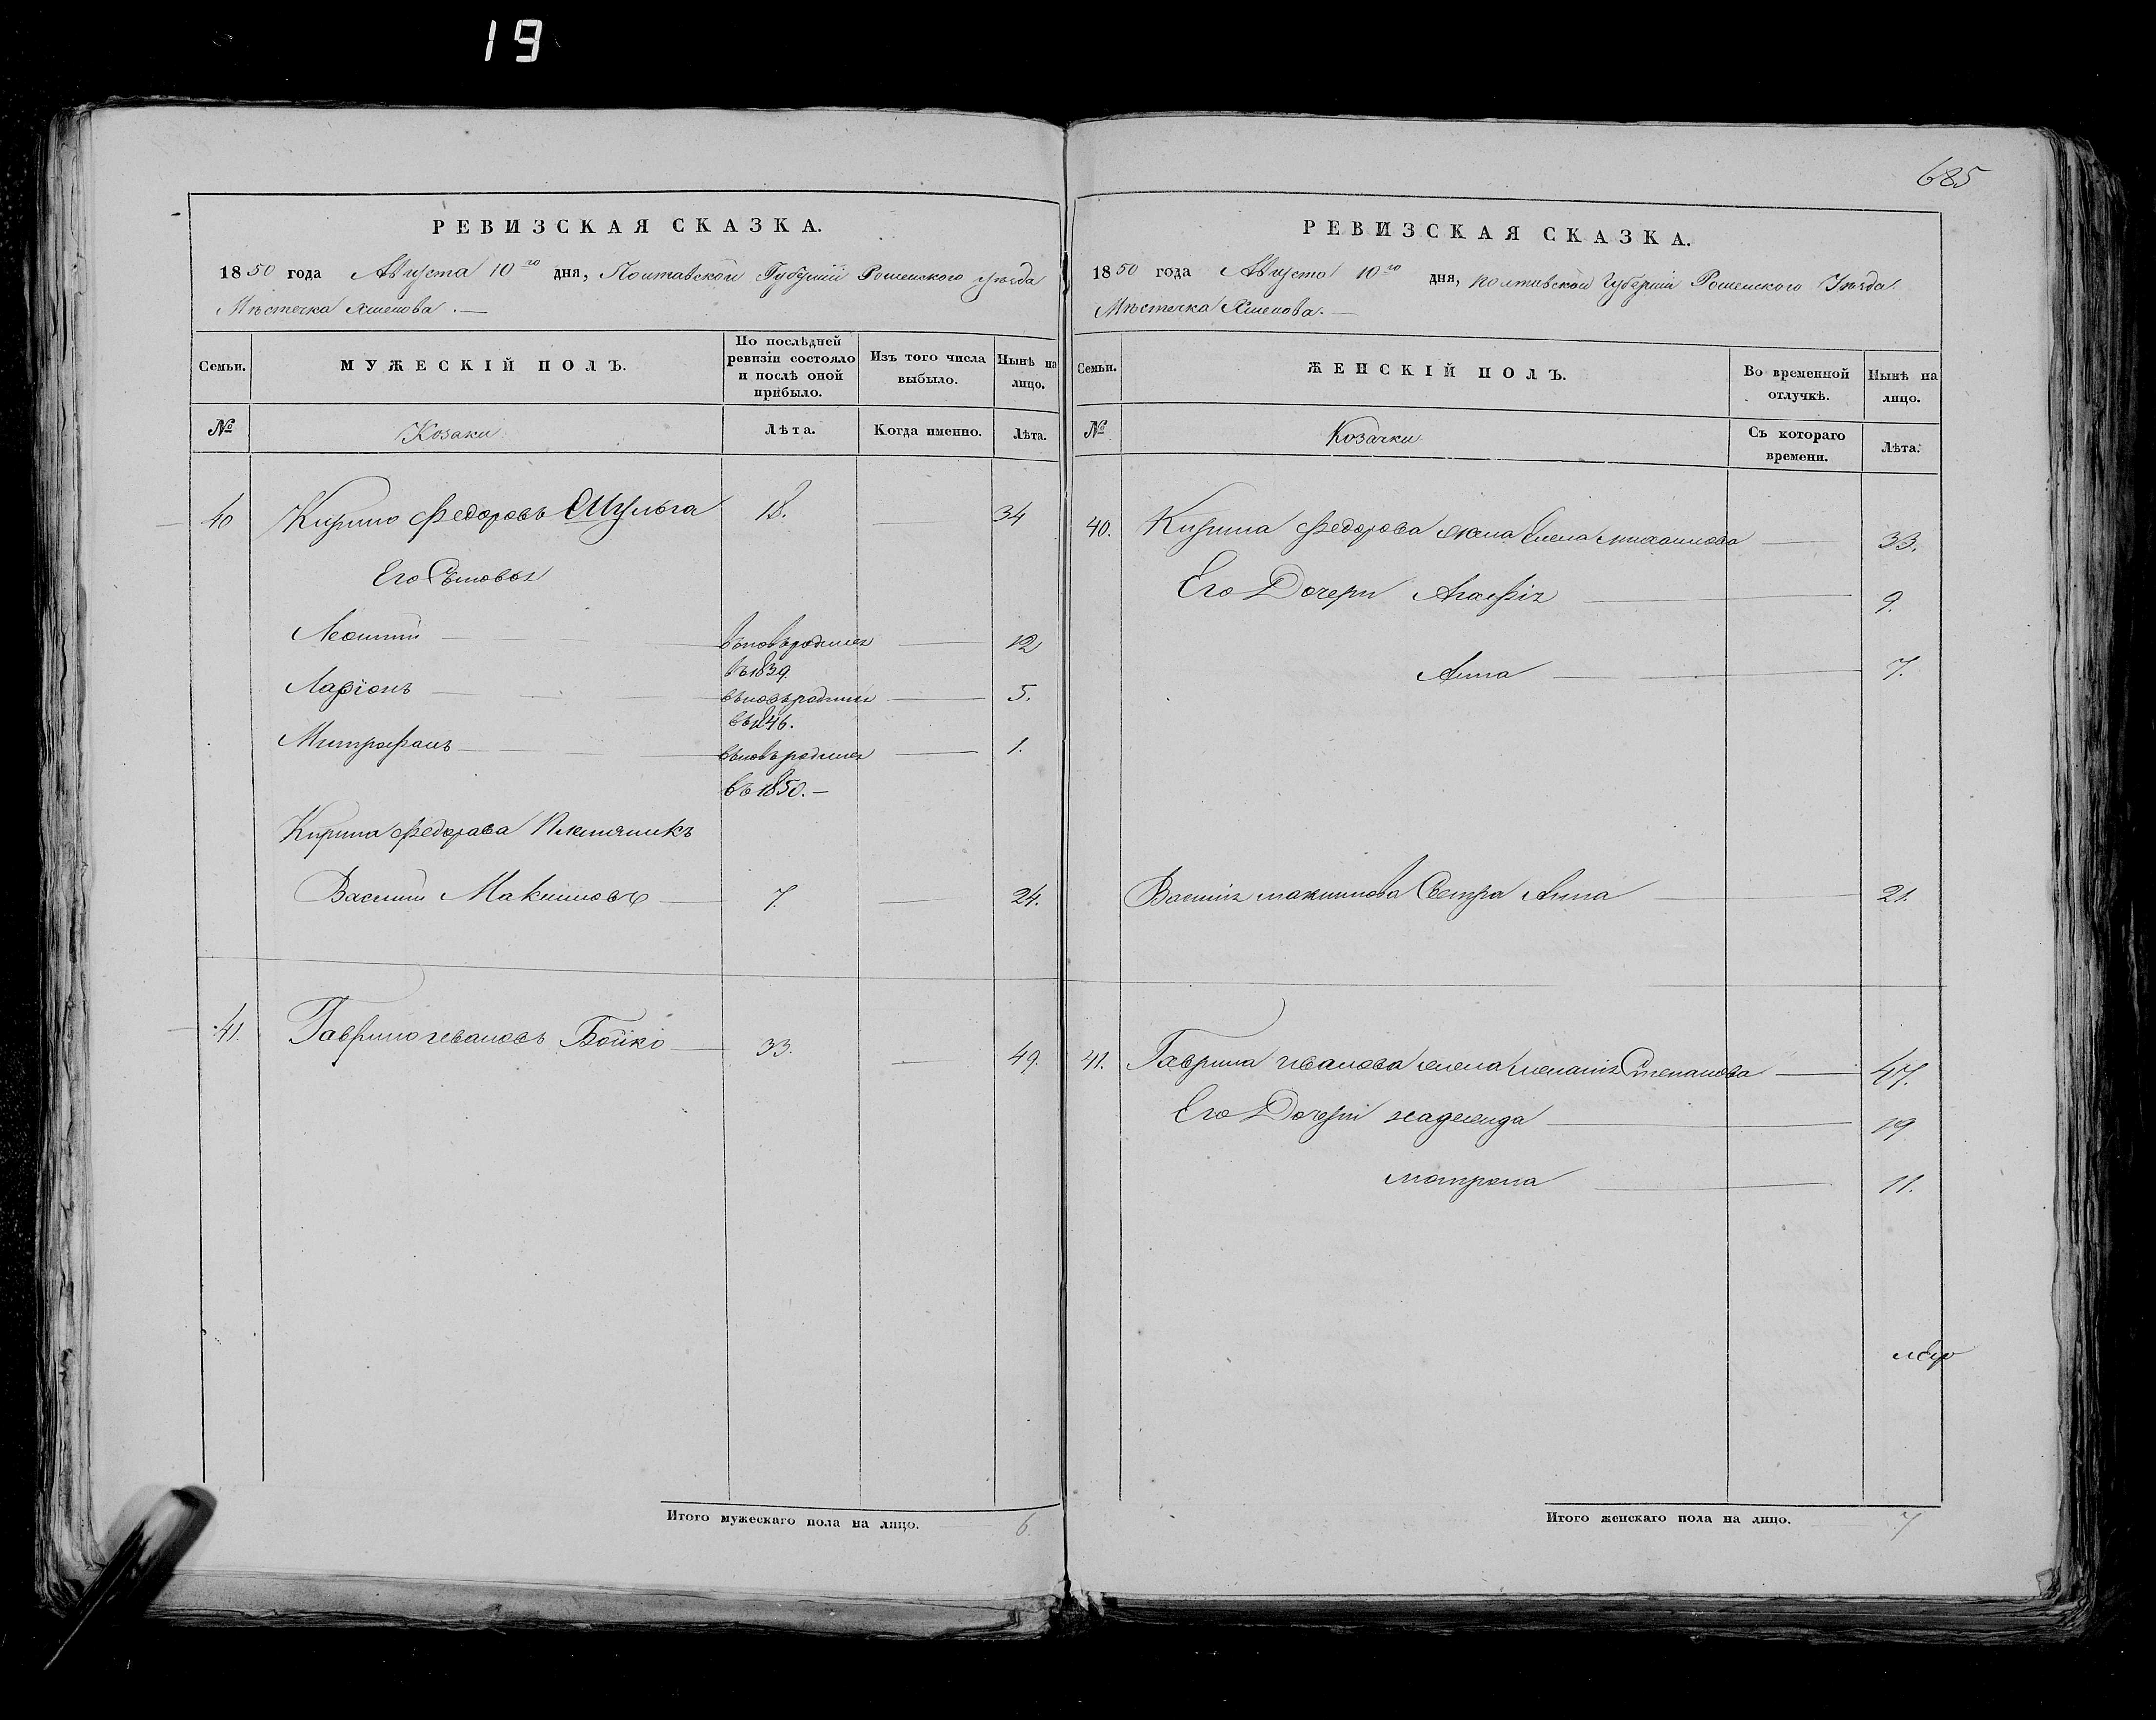 19
685
РЕВИЗСКАЯ СКАЗКА.
1850 года Августа 10го дня, Полтавской Губерніи Роменского уѣзда
Мѣстечка Хмелова.
Семьи. МУЖЕСКІЙ ПОЛЪ. По послѣдней ревизіи состояло и послѣ оной прибыло. Изъ того числа выбыло. Нынѣ на лицо.
№ Козаки. Лѣта. Когда именно. Лѣта.
40 Кирило Федоровъ Шульга 18. 34
Его Сыновья
Леонтій вновь родился 12
въ 1839.
Ларіонъ вновь родился 5.
въ 1846.
Митрофанъ вновь родился 1.
въ 1850.
Кирила Федорова Племянникъ
Василій Максимовъ 7. 24.
41. Гаврило Ивановъ Бойко 33. 49.
Итого мужескаго пола на лицо. 6.
РЕВИЗСКАЯ СКАЗКА.
1850 года Августа 10го дня, Полтавской Губерніи Роменского Уѣзда
Мѣстечка Хмелова.
Семьи. ЖЕНСКІЙ ПОЛЪ. Во временной отлучкѣ. Нынѣ на лицо.
№ Козачки. Съ котораго времени. Лѣта.
40. Кирила Федорова жена Елена Михайлова 33.
Его Дочери Агафія 9.
Анна 7.
Василія Максимова Сестра Анна 21.
41. Гаврила Иванова жена Меланія Степанова 47.
Его Дочери Надежда 19
Мотрона 11.
Итого женскаго пола на лицо. 7